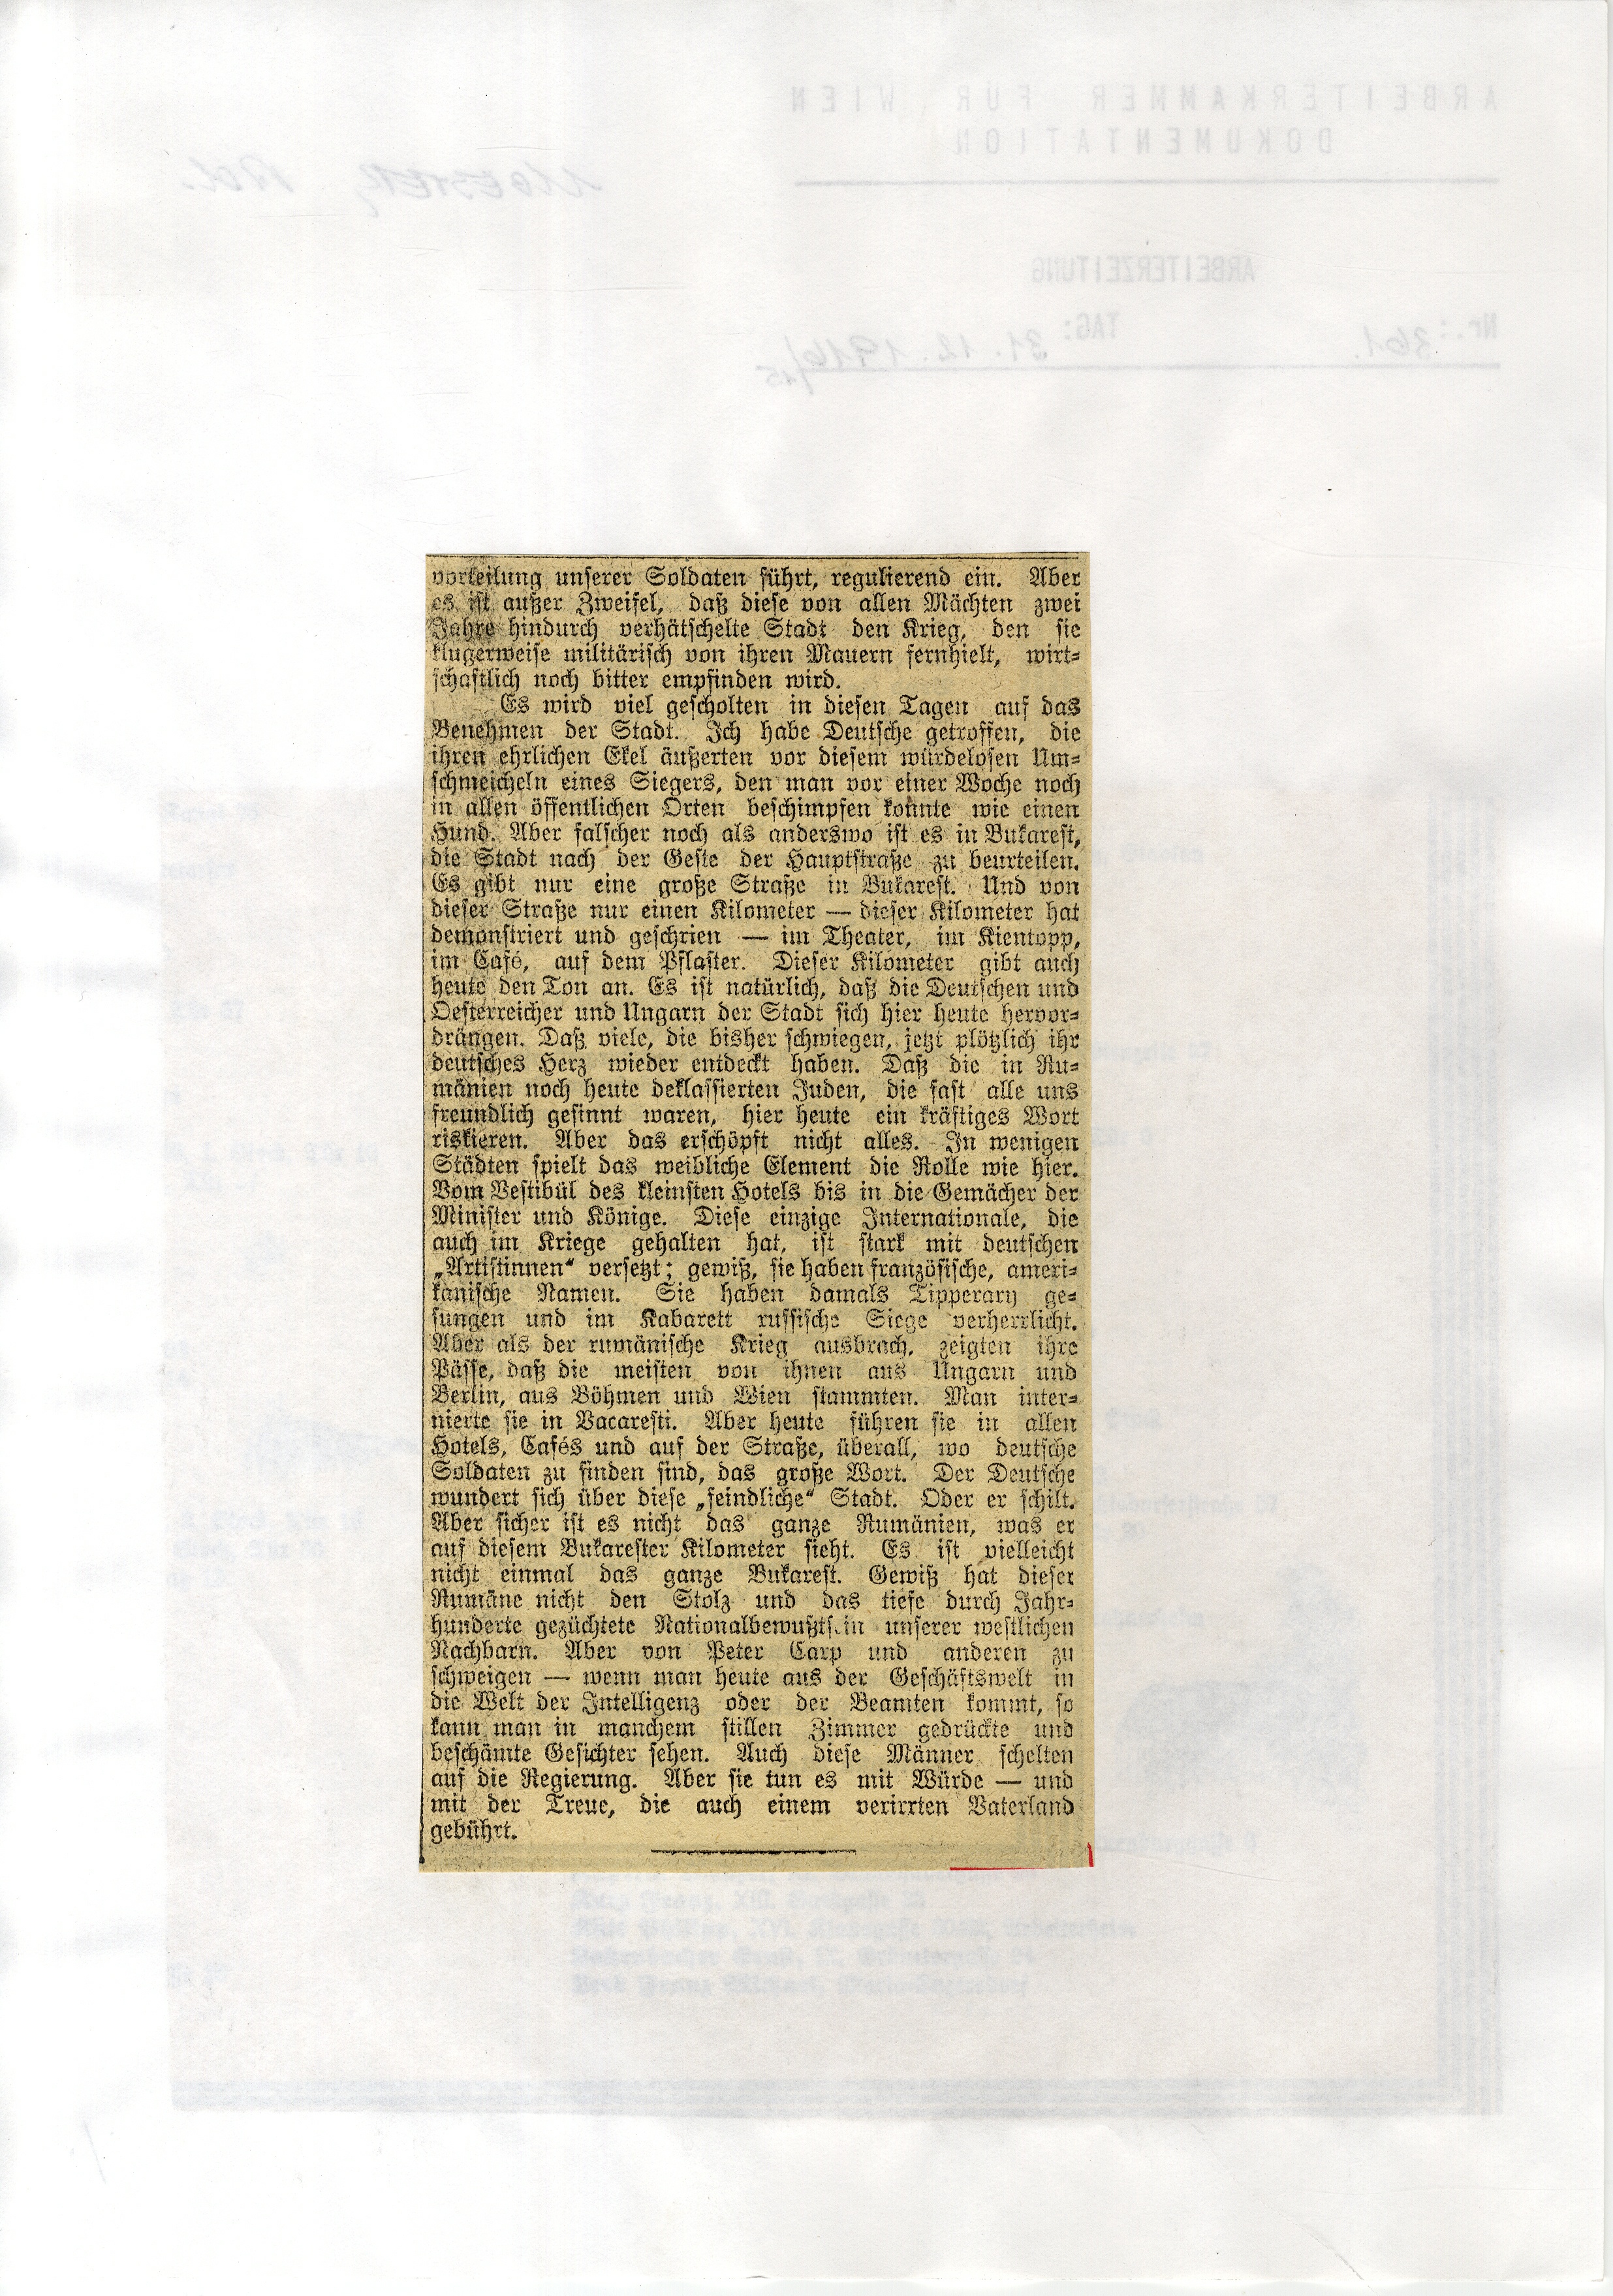 ARBEITERKAMMER FÜR WIEN
DOKUMENTATION
ARBEITERZEITUNG
Nr.: 361. TAG: 31. 12. 1916/15
vorteilung unserer Soldaten führt, regulierend ein. Aber
es ist außer Zweifel, daß diese von allen Mächten zwei
Jahre hindurch verhätschelte Stadt den Krieg, den sie
klugerweise militärisch von ihren Mauern fernhielt, wirt-
schaftlich noch bitter empfinden wird.
Es wird viel gescholten in diesen Tagen auf das
Benehmen der Stadt. Ich habe Deutsche getroffen, die
ihren ehrlichen Ekel äußerten vor diesem würdelosen Um-
schmeicheln eines Siegers, den man vor einer Woche noch
in allen öffentlichen Orten beschimpfen konnte wie einen
Hund. Aber falscher noch als anderswo ist es in Bukarest,
die Stadt nach der Geste der Hauptstraße zu beurteilen.
Es gibt nur eine große Straße in Bukarest. Und von
dieser Straße nur einen Kilometer — dieser Kilometer hat
demonstriert und geschrien — im Theater, im Kientopp,
im Café, auf dem Pflaster. Dieser Kilometer gibt auch
heute den Ton an. Es ist natürlich, daß die Deutschen und
Oesterreicher und Ungarn der Stadt sich hier heute hervor-
drängen. Daß viele, die bisher schwiegen, jetzt plötzlich ihr
deutsches Herz wieder entdeckt haben. Daß die in Ru-
mänien noch heute deklassierten Juden, die fast alle uns
freundlich gesinnt waren, hier heute ein kräftiges Wort
riskieren. Aber das erschöpft nicht alles. In wenigen
Städten spielt das weibliche Element die Rolle wie hier.
Vom Vestibül des kleinsten Hotels bis in die Gemächer der
Minister und Könige. Diese einzige Internationale, die
auch im Kriege gehalten hat, ist stark mit deutschen
„Artistinnen“ versetzt; gewiß, sie haben französische, ameri-
kanische Namen. Sie haben damals Tipperary ge-
sungen und im Kabarett russische Siege verherrlicht.
Aber als der rumänische Krieg ausbrach, zeigten ihre
Pässe, daß die meisten von ihnen aus Ungarn und
Berlin, aus Böhmen und Wien stammten. Man inter-
nierte sie in Vacaresti. Aber heute führen sie in allen
Hotels, Cafés und auf der Straße, überall, wo deutsche
Soldaten zu finden sind, das große Wort. Der Deutsche
wundert sich über diese „feindliche“ Stadt. Oder er schilt.
Aber sicher ist es nicht das ganze Rumänien, was er
auf diesem Bukarester Kilometer sieht. Es ist vielleicht
nicht einmal das ganze Bukarest. Gewiß hat dieser
Rumäne nicht den Stolz und das tiefe durch Jahr-
hunderte gezüchtete Nationalbewußtsein unserer westlichen
Nachbarn. Aber von Peter Carp und anderen zu
schweigen — wenn man heute aus der Geschäftswelt in
die Welt der Intelligenz oder der Beamten kommt, so
kann man in manchem stillen Zimmer gedrückte und
beschämte Gesichter sehen. Auch diese Männer schelten
auf die Regierung. Aber sie tun es mit Würde — und
mit der Treue, die auch einem verirrten Vaterland
gebührt.